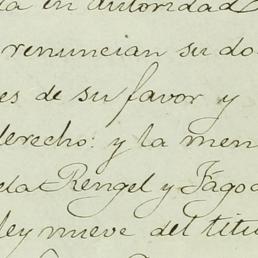 la en autoridad
renuncian su do
es de su favor y
derecho: y la men
da Rengel y Fágo
ley nueve del titu